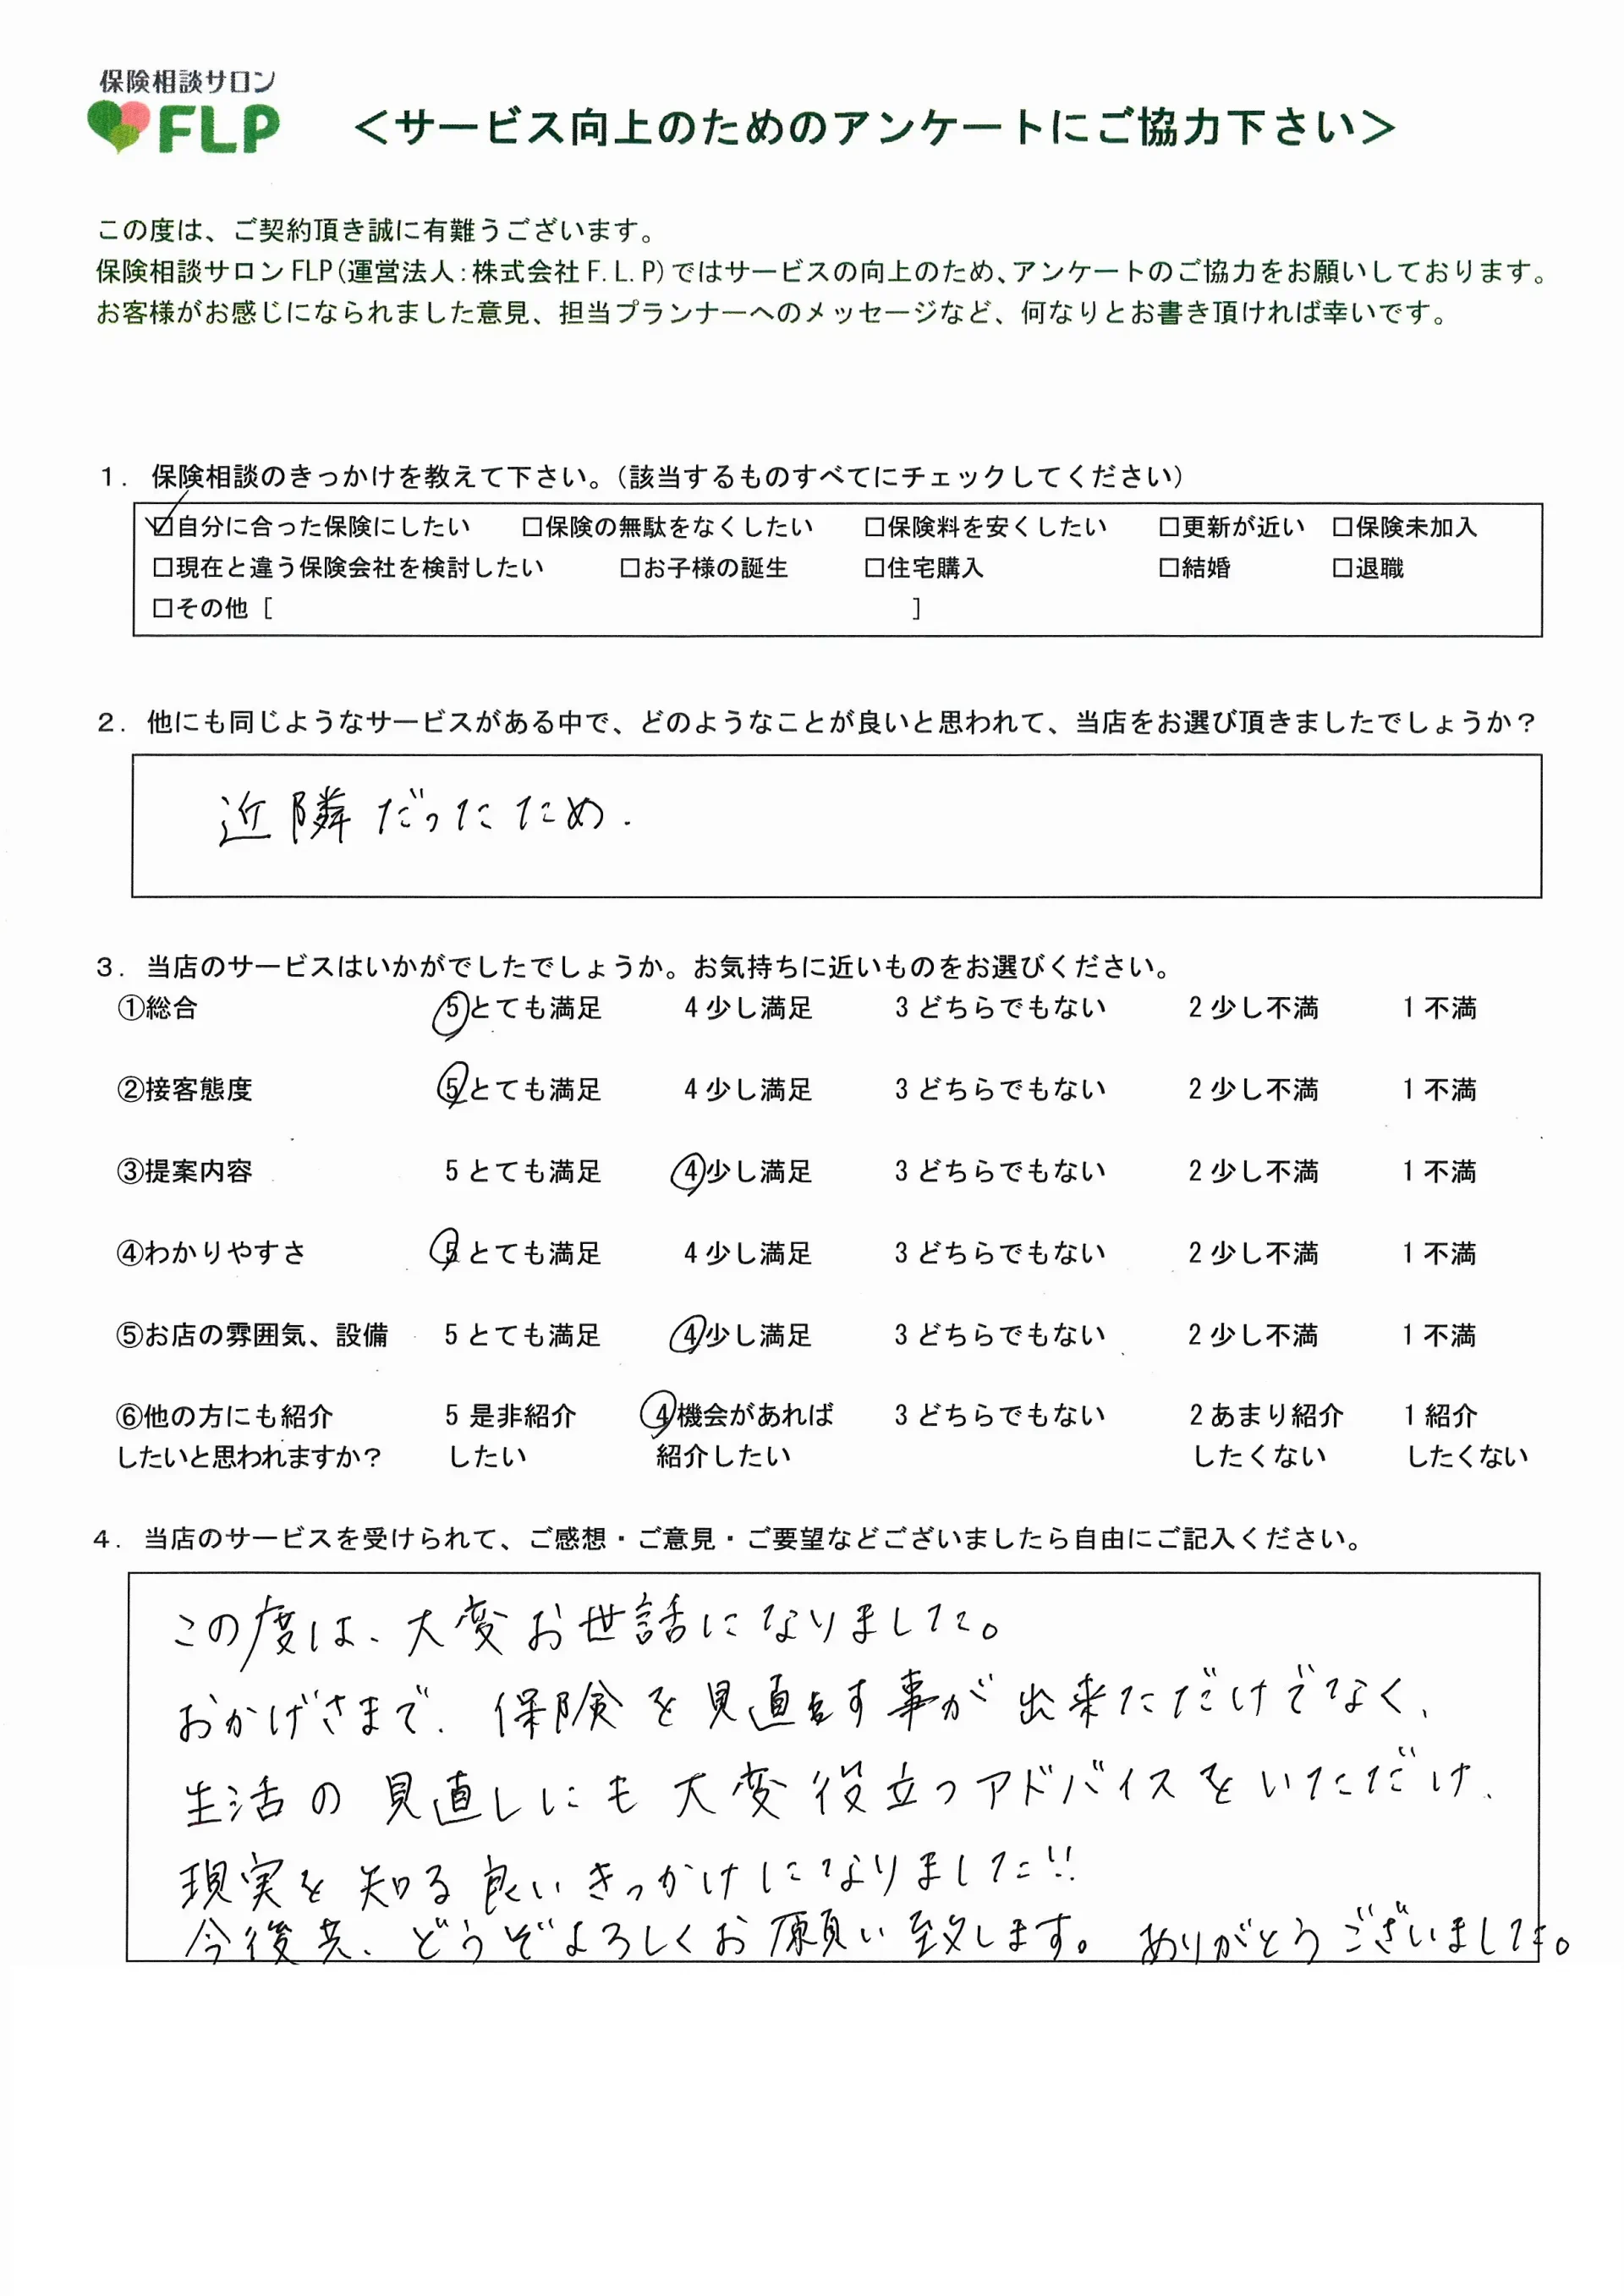 保険相談サロン
FLP
＜サービス向上のためのアンケートにご協力下さい＞
この度は、ご契約頂き誠に有難うございます。
保険相談サロンFLP(運営法人:株式会社F.L.P)ではサービスの向上のため、アンケートのご協力をお願いしております。
お客様がお感じになられました意見、担当プランナーへのメッセージなど、何なりとお書き頂ければ幸いです。
1. 保険相談のきっかけを教えて下さい。(該当するものすべてにチェックしてください)
☑自分に合った保険にしたい □保険の無駄をなくしたい □保険料を安くしたい □更新が近い □保険未加入
□現在と違う保険会社を検討したい □お子様の誕生 □住宅購入 □結婚 □退職
□その他 [ ]
2. 他にも同じようなサービスがある中で、どのようなことが良いと思われて、当店をお選び頂きましたでしょうか?
近隣だったため.
3. 当店のサービスはいかがでしたでしょうか。お気持ちに近いものをお選びください。
①総合 5とても満足 4少し満足 3どちらでもない 2少し不満 1不満
②接客態度 5とても満足 4少し満足 3どちらでもない 2少し不満 1不満
③提案内容 5とても満足 4少し満足 3どちらでもない 2少し不満 1不満
④わかりやすさ 5とても満足 4少し満足 3どちらでもない 2少し不満 1不満
⑤お店の雰囲気、設備 5とても満足 4少し満足 3どちらでもない 2少し不満 1不満
⑥他の方にも紹介 5是非紹介 4機会があれば 3どちらでもない 2あまり紹介 1紹介
したいと思われますか? したい 紹介したい したくない したくない
4. 当店のサービスを受けられて、ご感想・ご意見・ご要望などございましたら自由にご記入ください。
この度は、大変お世話になりました。
おかげさまで、保険を見直す事が出来ただけでなく、
生活の見直しにも大変役立つアドバイスをいただけ、
現実を知る良いきっかけになりました!!
今後共、どうぞよろしくお願い致します。ありがとうございました。